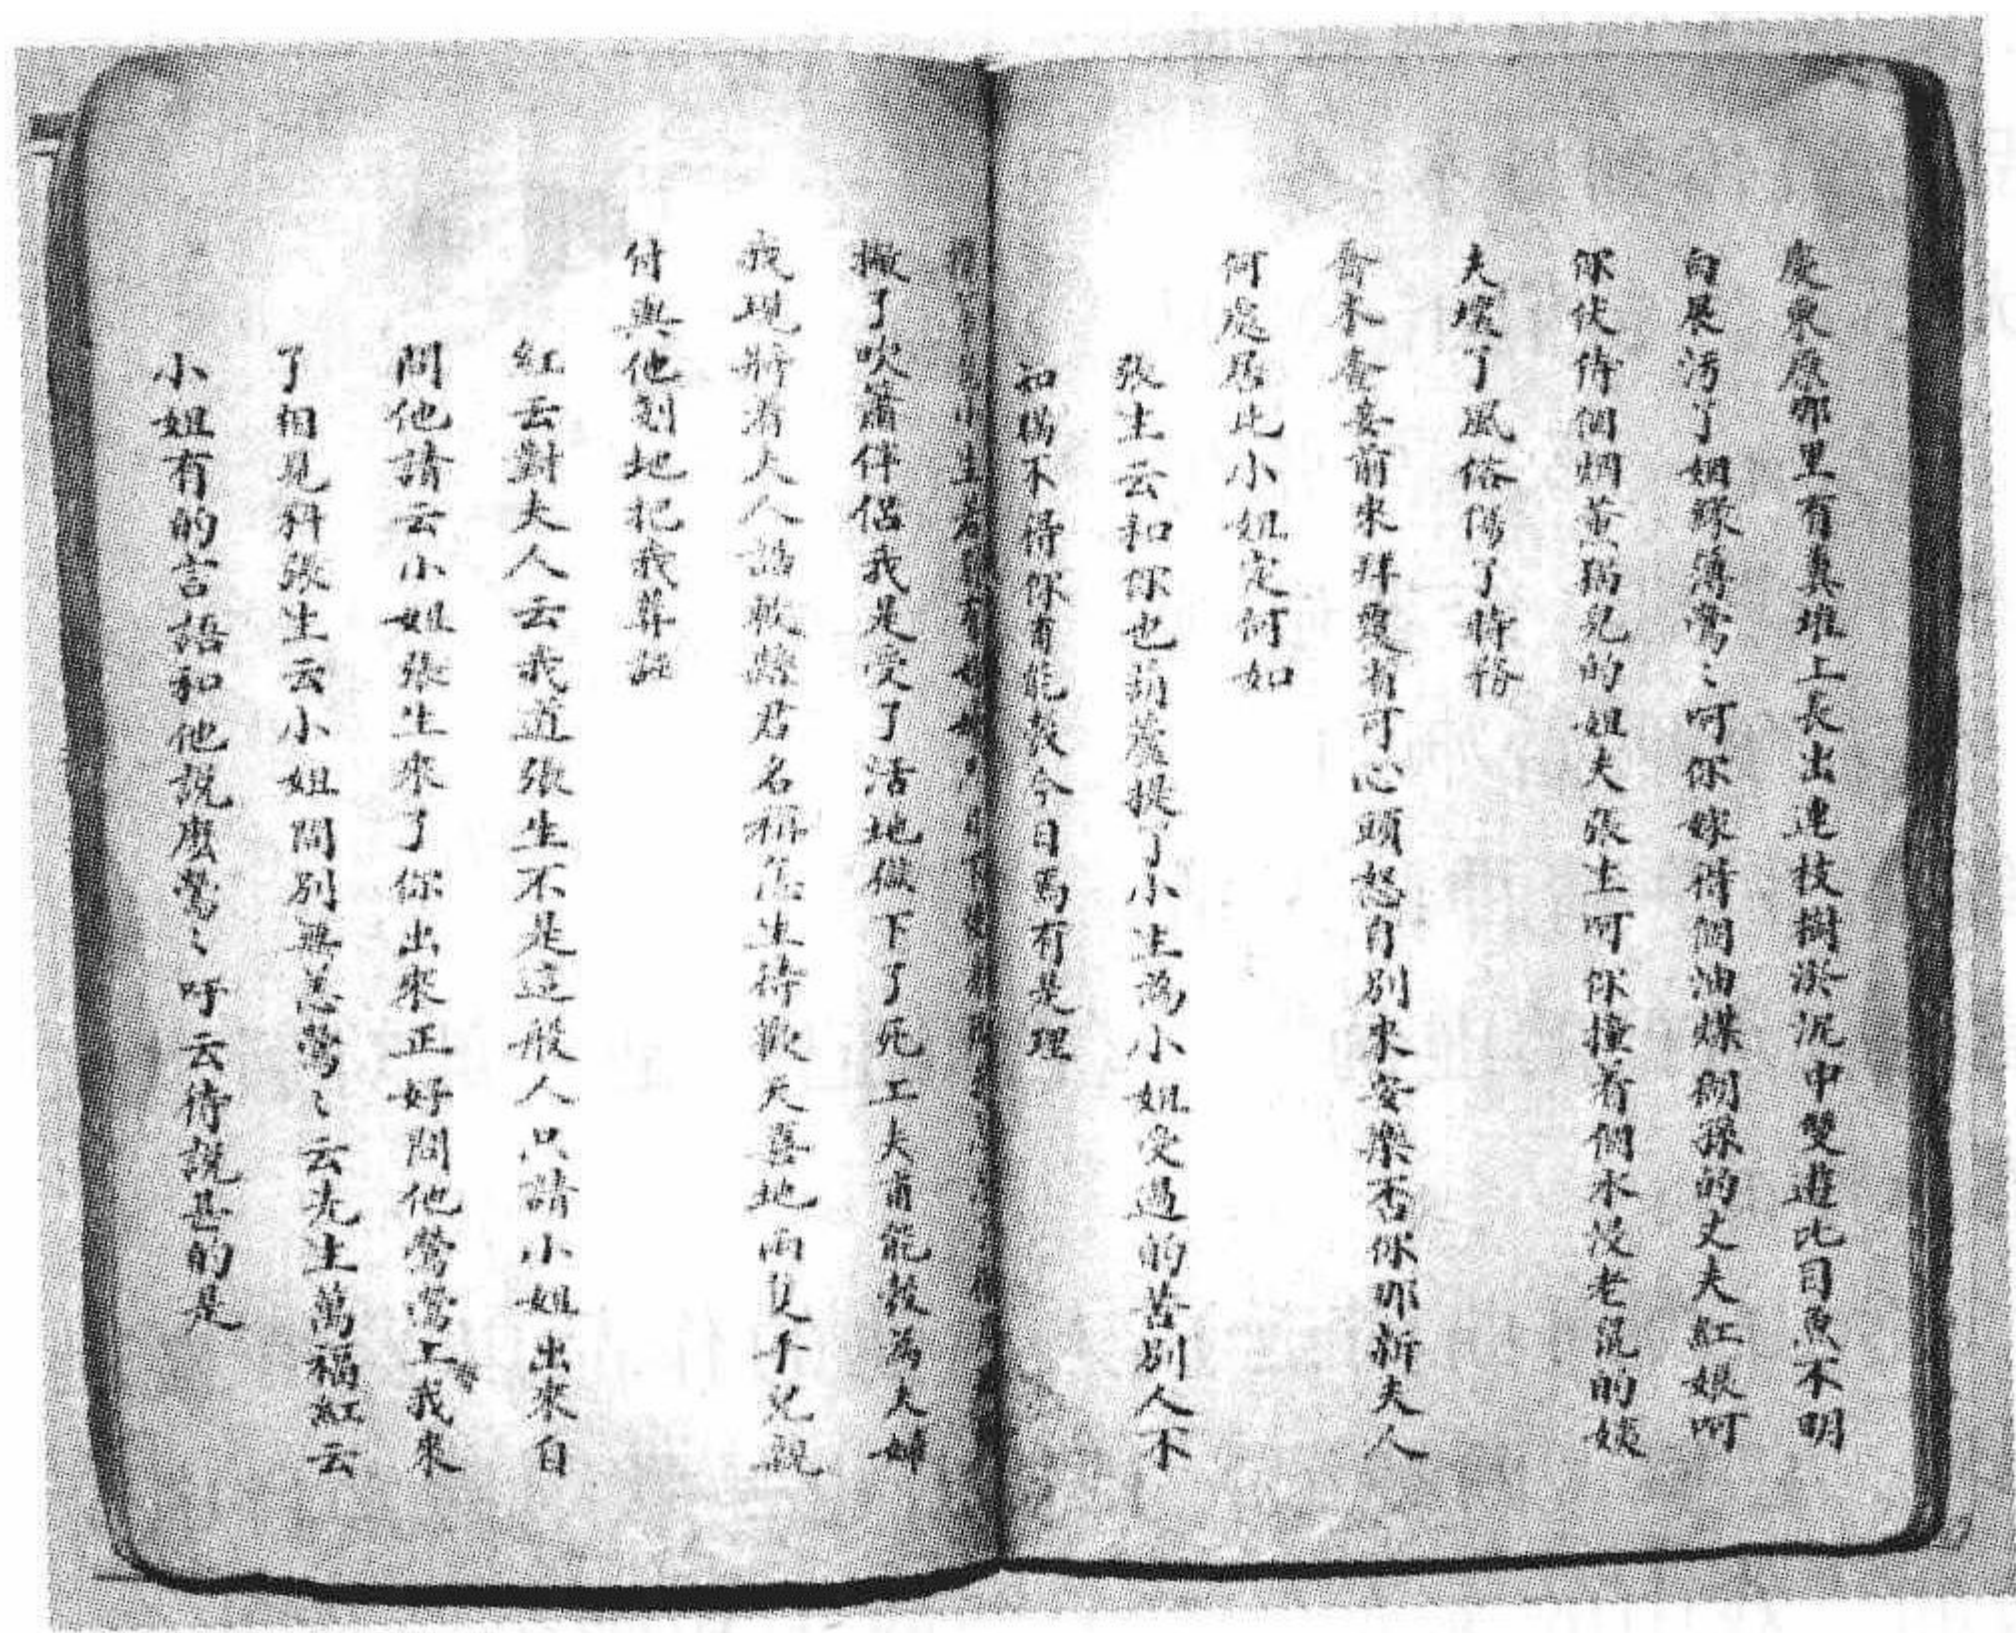 慶東廄那里有糞堆上長出連枝樹淤泥中雙遊比目魚不明
白展污了姻緣簿鶯〻呵你嫁得個油煠猢猻的丈夫紅娘呵
你伏侍個烟薰猫兒的姐夫張生呵你撞着個水浸老鼠的姨
夫壞了風俗傷了時務
喬木奩妾前來拜覆有可心頭怒自別來安樂否你那新夫人
何處居比小姐定何如
張生云和你也葫蘆提了小生為小姐受過的苦別人不
知瞞不得你有能彀今日焉有是理
撇了吹簫伴侶我是受了活地獄下了死工夫甫能彀為夫婦
我現將着夫人誥敕縣君名稱怎生待歡天喜地兩隻手兒親
付與他剗地把我葬誣
紅云對夫人云我道張生不是這般人只請小姐出來自
問他請云小姐張生來了你出來正好問他鶯鶯上我來
了相見科張生云小姐間別無恙鶯〻云先生萬福紅云
小姐有的言語和他説麽鶯〻吁云待説甚的是